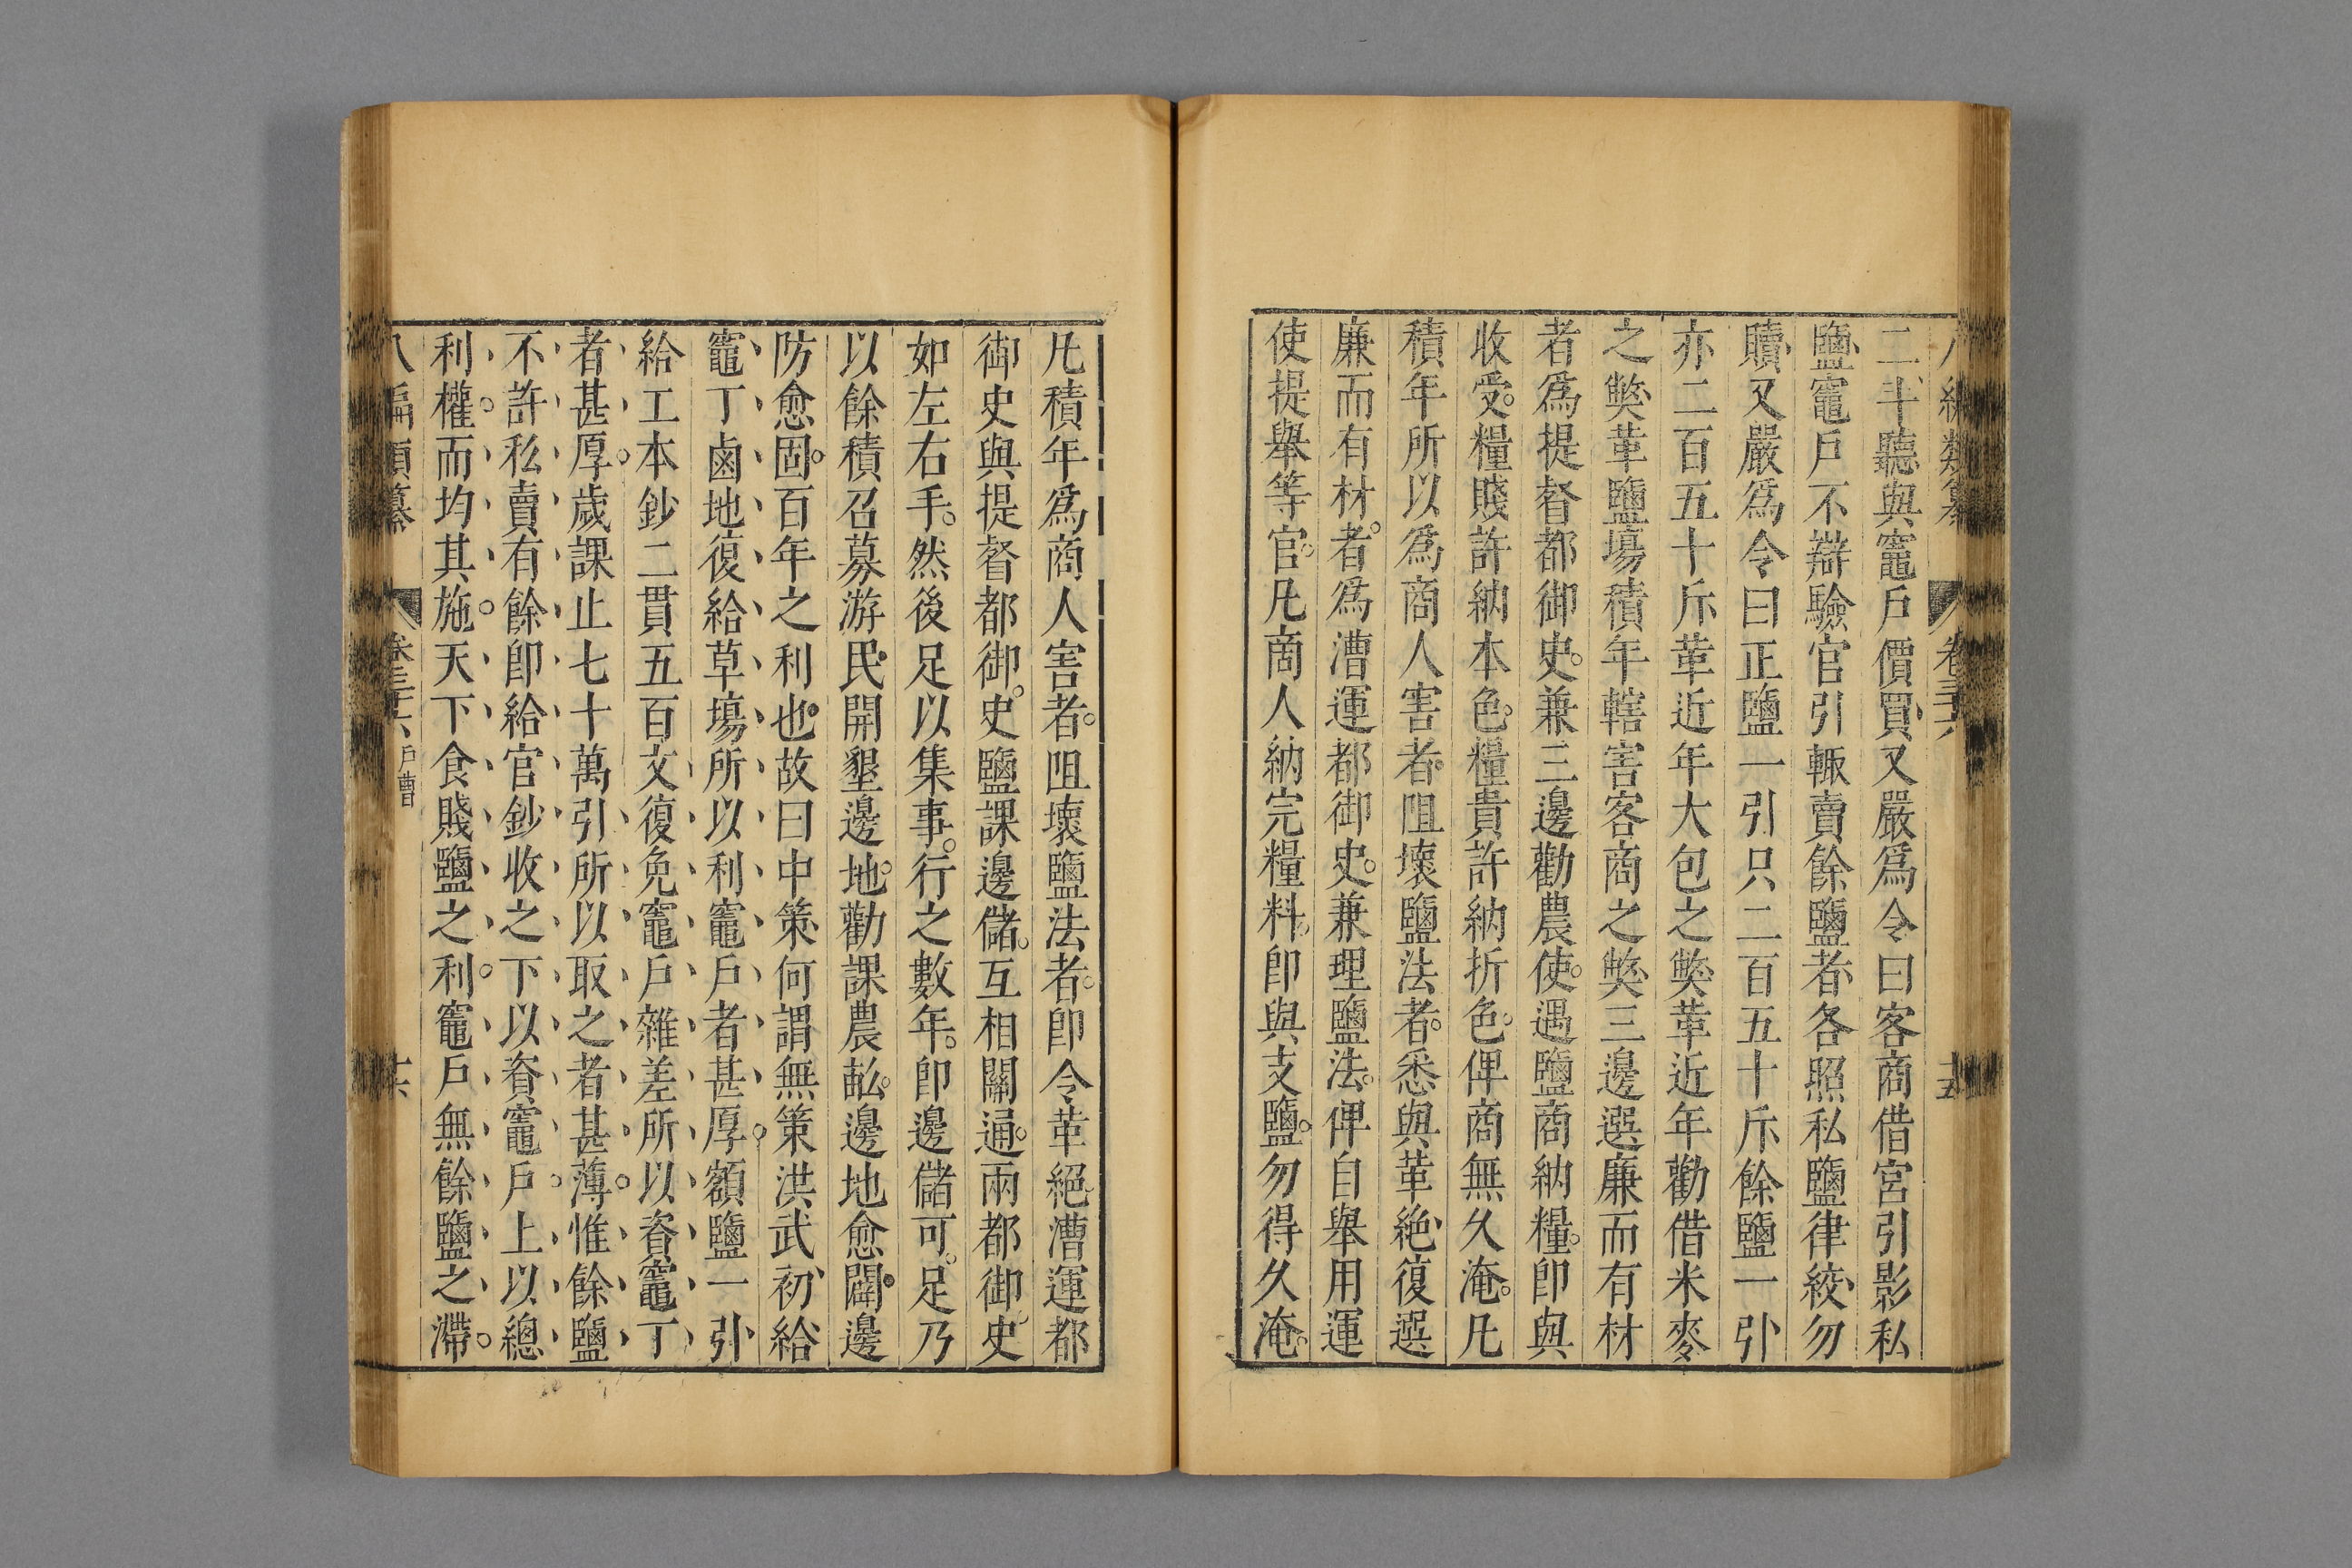 八編類纂 卷三十六 十五
二斗聽與竈戶價買又嚴爲令曰客商借宮引影私
鹽竈戶不辯驗官引輙賣餘鹽者各照私鹽律絞勿
贖又嚴爲令曰正鹽一引只二百五十斤餘鹽一引
亦二百五十斤革近年大包之獘革近年勸借米麥
之獘革鹽塲積年轄害客商之獘三邊選廉而有材
者爲提督都御史。兼三邊勸農使。遇鹽商納糧。卽與
收受。糧賤許納本色。糧貴許納折色。俾商無久淹。凡
積年所以爲商人害者。阻壞鹽法者。悉與革絕復選
廉而有材。者爲漕運都御史。兼理鹽法。俾自舉用運
使提舉等官。凡商人納完糧料。卽與支鹽。勿得久淹。
凡積年爲商人害者。阻壞鹽法者。卽令革絕。漕運都
御史與提督都御。史鹽課邊儲。互相關通。兩都御。史
如左右手。然後足以集事。行之數年。卽邊儲可。足乃
以餘積召募游民開墾邊地。勸課農畝。邊地愈闢邊
防愈固。百年之利也故曰中策何謂無策洪武初給
竈丁鹵地復給草塲所以利竈戶者甚厚。額鹽一引
給工本鈔二貫五百文復免竈戶雜差所以資竈丁
者甚厚。歲課止七十萬引所以取之者甚薄。惟餘鹽
不許私賣有餘卽給官鈔收之下以資竈戶。上以總
利權。而均其施。天下食賤鹽之利。竈戶無餘鹽之滯。
八編類纂 卷三十六 戶曹 十六